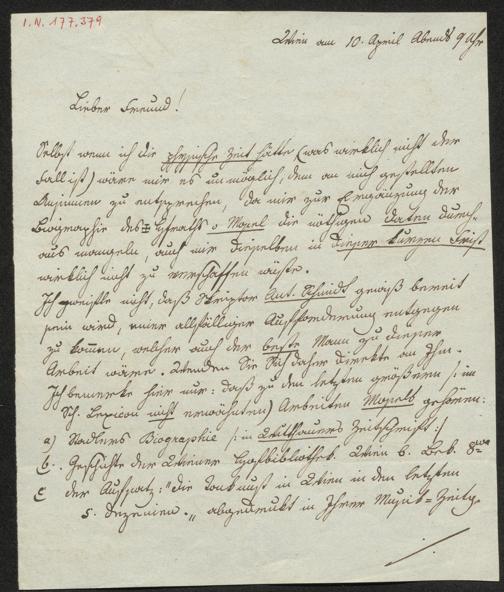 I.N. 177.379
Wien am 10. April Abends 9 Uhr
Lieber Freund!
Selbst wenn ich die physische Zeit hätte (was wirklich nicht der
Fall ist) wäre mir es unmöglich, dem an mich gestellten
Ansinnen zu entsprechen, da mir zur Ergänzung der
Biographie des Hofraths v Mosel die nöthigen Daten durch-
aus mangeln, auch mir dieselben in dieser kurzen Frist
wirklich nicht zu verschaffen wüßte.
Ich zweifle nicht, daß Skriptor Ant. Schmidt gewiß bereit
sein wird, einer allfälligen Aufforderung entgegen
zu kommen, welcher auch der beste Mann zu dieser
Arbeit wäre. Wenden Sie Sich daher direkte an Ihn.
Ich bemerke hier nur: daß zu den letzten größern /: im
Sch: Lexicon nicht erwähnten) Arbeiten Mosels gehören:
a) Stadlers Biographie /: in Witthauers Zeitschrift :/
b. Geschichte der Wiener Hofbibliothek. Wien b. Beck. 8vo
c der Aufsatz: "Die Tonkunst in Wien in den letzten
5 Dezenien." abgedruckt in Ihrer Musik-Zeitg.